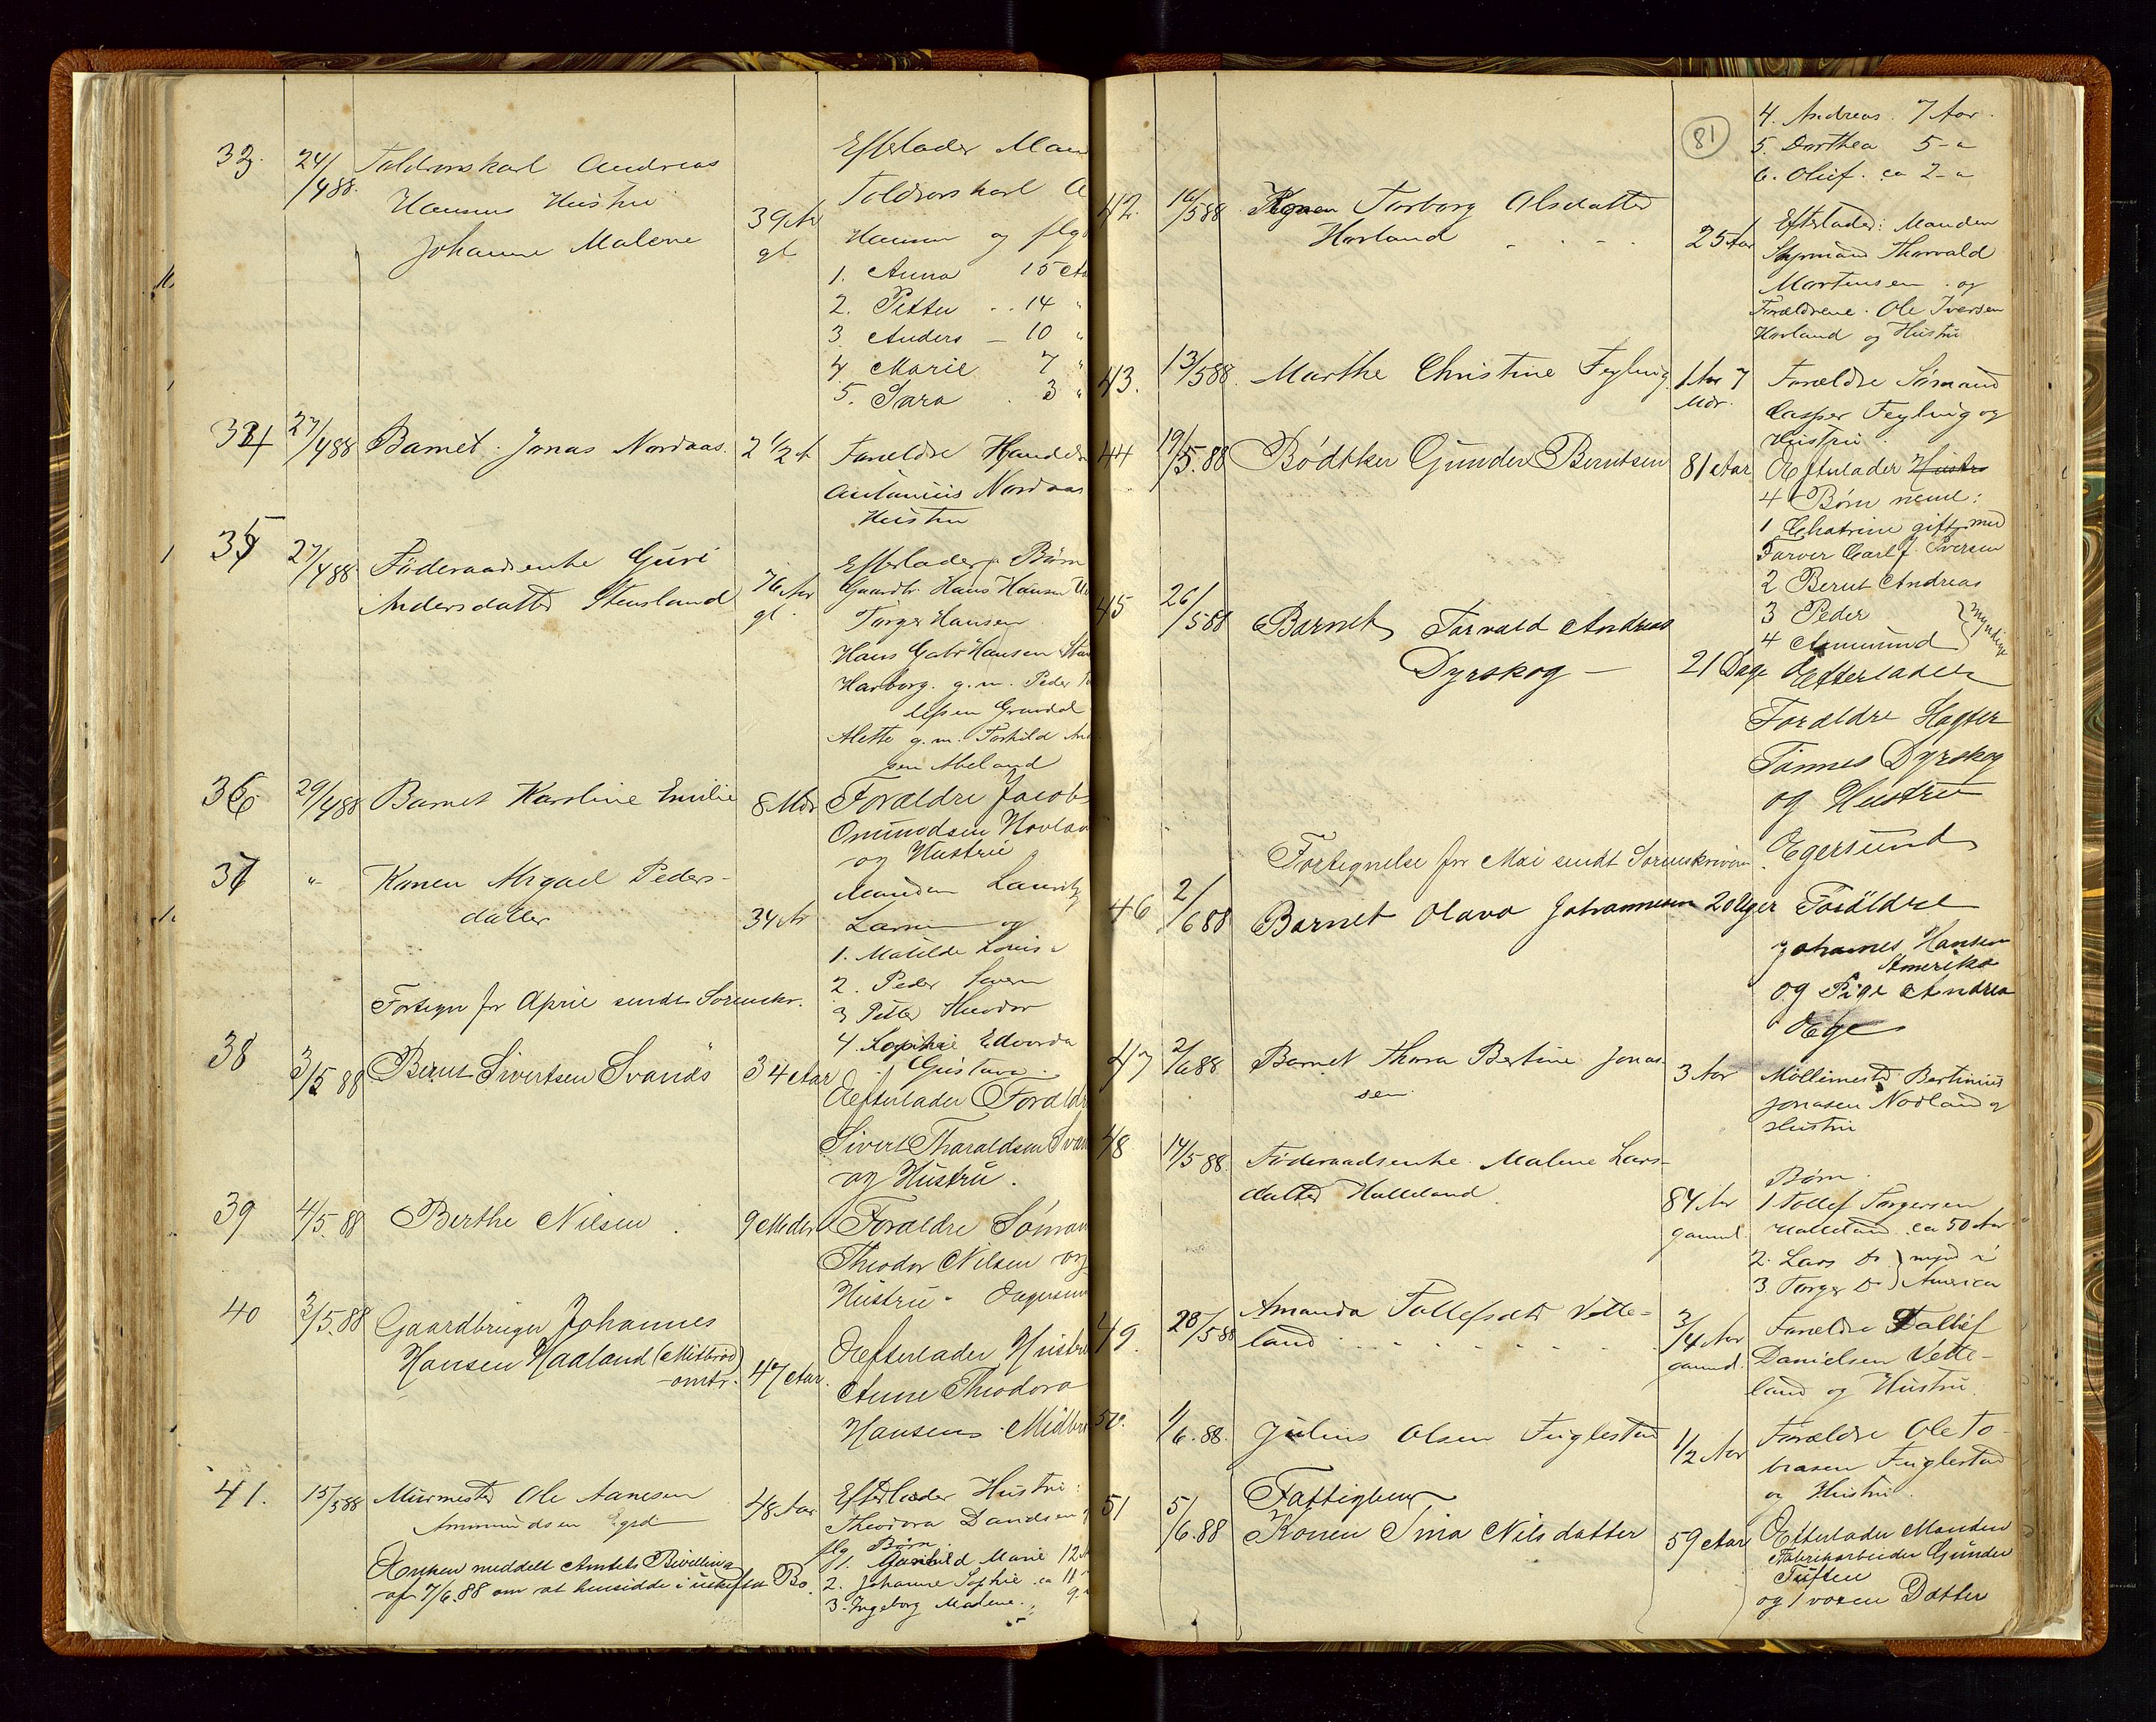 33. 24/4 88. Toldrorskarl Andreas
Hansens Hustru
Johanne Malene
39 Ar
gl
Efterlader Man
Toldrorskarl A
Hansen og flg
1. Anna 15 Aa
2. Petter .. 14 "
3. Anders - 10 "
4 Marie 7 "
5. Sara . 3 "
34 27/4 88 Barnet: Jonas Nordaas. 2 1/2 A
Forældre Handels
Antonius Nordaas
Hustru
35 27/4 88 Føderaadsenke Guri
Andersdatter Stensland
76 Aar
gl.
Efterlader Børn
Gaardbr. Hans Hansen
Torger Hansen
Hans Gabr Hansen
Harborg. g.m. Peder
lefsen Grøndal
Alette g.m. Torkild An
sen Abeland
36 29/4 88 Barnet Karoline Emilie 8 Mdr
Forældre Jacob
Omundsen Hovlan
og Hustru
37 " Konen Abigael Peders-
datter 34 Ar
Manden Lauritz
Larsen og
1. Matilde Louise
2. Peder Severin
3 Petter Theodor
4. Sophie Edvarda
Gustava.
Fortegn for April sendt Sorenskr.
38 3/5 88 Bernt Sivertsen Svanäs 34 Aar
Efterlader Foraldr
Sivert Tharaldsen Svan
og Hustru.
39 4/5. 88 Berthe Nilsen . 9 Mdr
Foraldre Söman
Theodor Nilsen og
Hustru - Egersun
40 3/5. 88 Gaardbruger Johannes
Hansen Haaland (Mitbrød)
omtr. 47 Aar.
Efterlader Hustru
Anne Theodora
Hansens Midbrø
41. 15/5 88 Murmester Ole Aanesen
Ammundsen Egsd 48 Aar
Efterlader Hustru:
Theodora Danielsen
flg Børn.
1. Gunhild Marie 12
2. Johanne Sophie ca 11
3. Ingeborg Malene. " 9
Enken meddelt Amtets Bevilling
af 7/6.88 om at hensidde i uskiftet Bo.
81
4. Andreas. 7 Aar.
5. Dorthea 5 - "
6. Oluf. ca 2 - "
42. 16/5 88 Konen Torborg Olsdatter
Hovland . . . 25 Aar
Efterlader: Manden
Styrmand Thorvald
Martensen . og
Forældrene. Ole Iversen
Hovland og Hustru
43. 13/5 88. Marthe Christine Feyling 1 Aar 7
Mdr.
Forældre Sømand
Casper Feyling og
Hustru.
44 19/5. 88 Bødtker Gunder Berntsen 81 Aar
Efterlader Hustru
4 Børn neml:
1 Chatrine gift med
Farver Carl J. Iversen
2 Bernt Andreas
3 Peder
4 Ammund
Myndige
45 26/5 88 Barnet Torvald Andreas
Dyrskog - 21 Dage
Efterlader
Foraldre
Tönnes Dyrskog
og Hustru
Egersund
Fortegnelse for Mai sendt Sorenskriveren.
46 2/6 88 Barnet Olava Johannesen 20 Uger
Foräldre
Johannes Hansen
Amerika
og Pige Andrea
Ege
47 2/6 88 Barnet Thora Bertine Jonas-
sen 3 Aar
Møllemester Bertinius
Jonasen Nodland og
Hustru
48 14/5 88. Føderaadsenke Malene Lars-
datter Halleland. 84 Ar
gamml.
Børn.
1 Tollef Torgersen
Halleland ca 50 Aar
2. Lars Do } mynd i
3. Torger Do } America
49. 28/5 88 Amanda Tollefsdtr Vette-
land . . . . . . 3/4 Aar
gamml.
Forældre Tollef
Danielsen Vette-
land og Hustru.
50. 1/6. 88. Julius Olsen Fuglestad 1/2 Aar
Forældre Ole To-
biasen Fuglestad
og Hustru.
51 5/6. 88 Fattiglem
Konen Sina Nilsdatter 59 Aar
Efterlader Manden
Fabrikarbeider Gunder
Tuften
og 1 voxen Datter